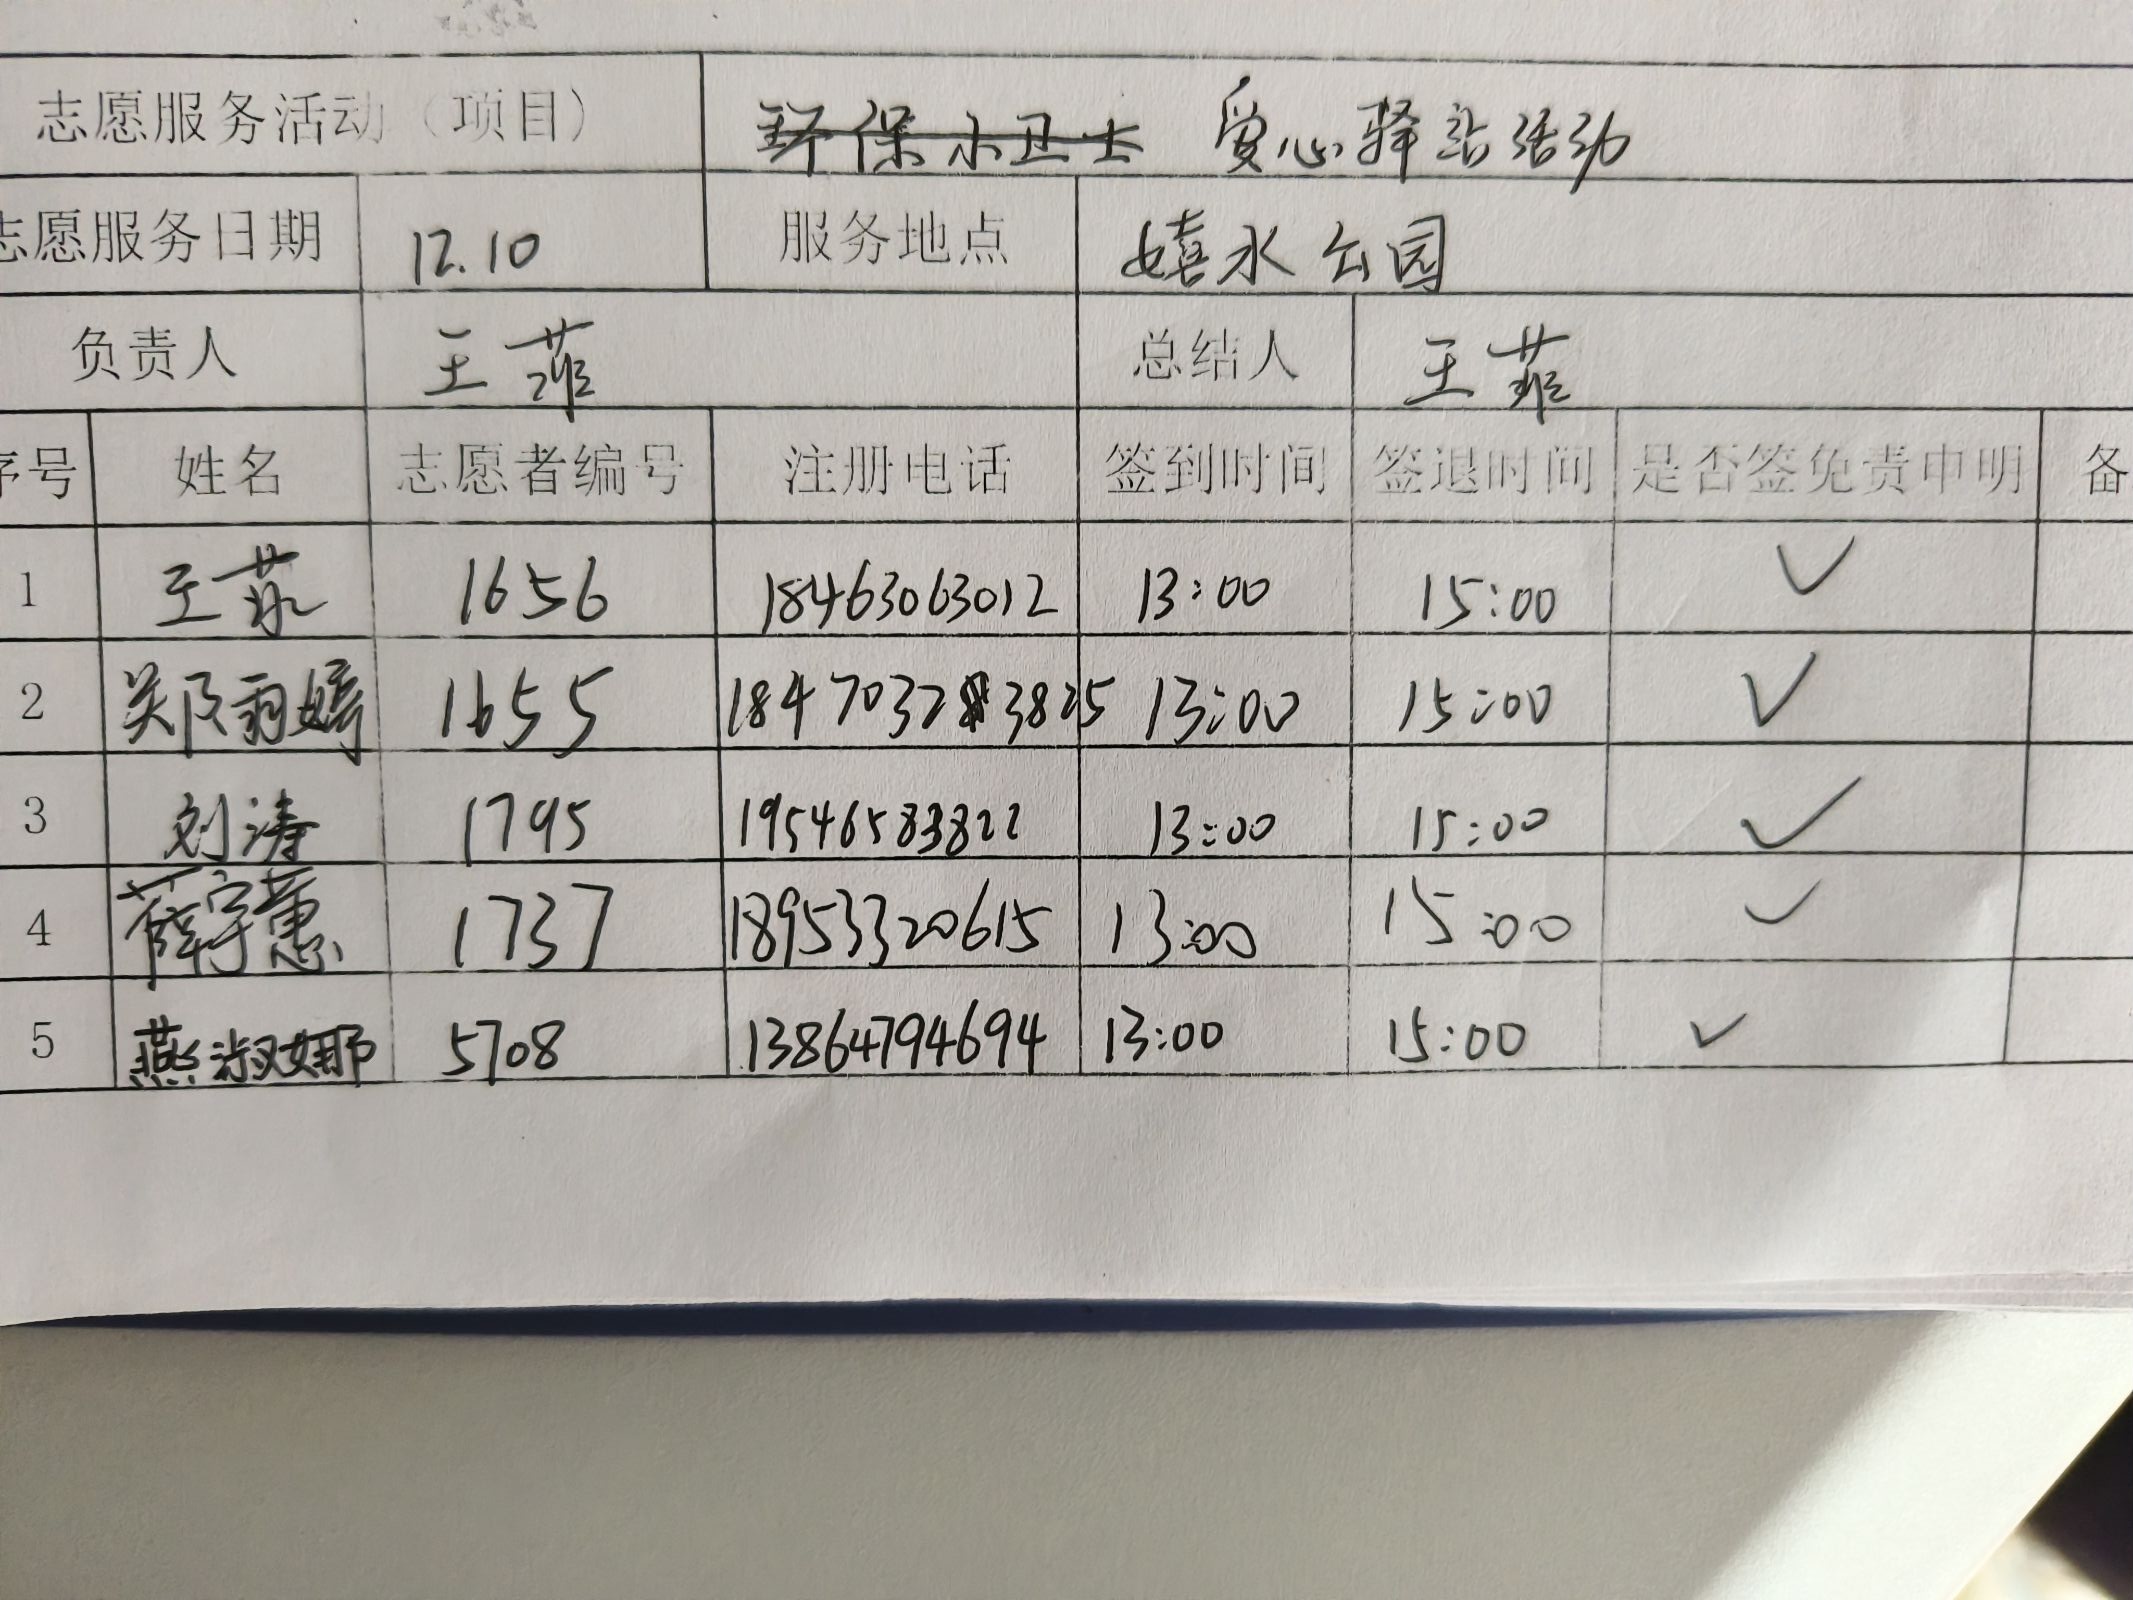 志愿服务活动（项目） 环保小卫士 爱心驿站活动
志愿服务日期 12.10 服务地点 嬉水公园
负责人 王菲 总结人 王菲
序号 姓名 志愿者编号 注册电话 签到时间 签退时间 是否签免责申明 备
1 王菲 1656 18463063012 13:00 15:00 ✓
2 郑雨婷 1655 18470323825 13:00 15:00 ✓
3 刘涛 1795 19546583822 13:00 15:00 ✓
4 薛宇蕙 1737 18953320615 13:00 15:00 ✓
5 燕淑娜 5708 13864794694 13:00 15:00 ✓